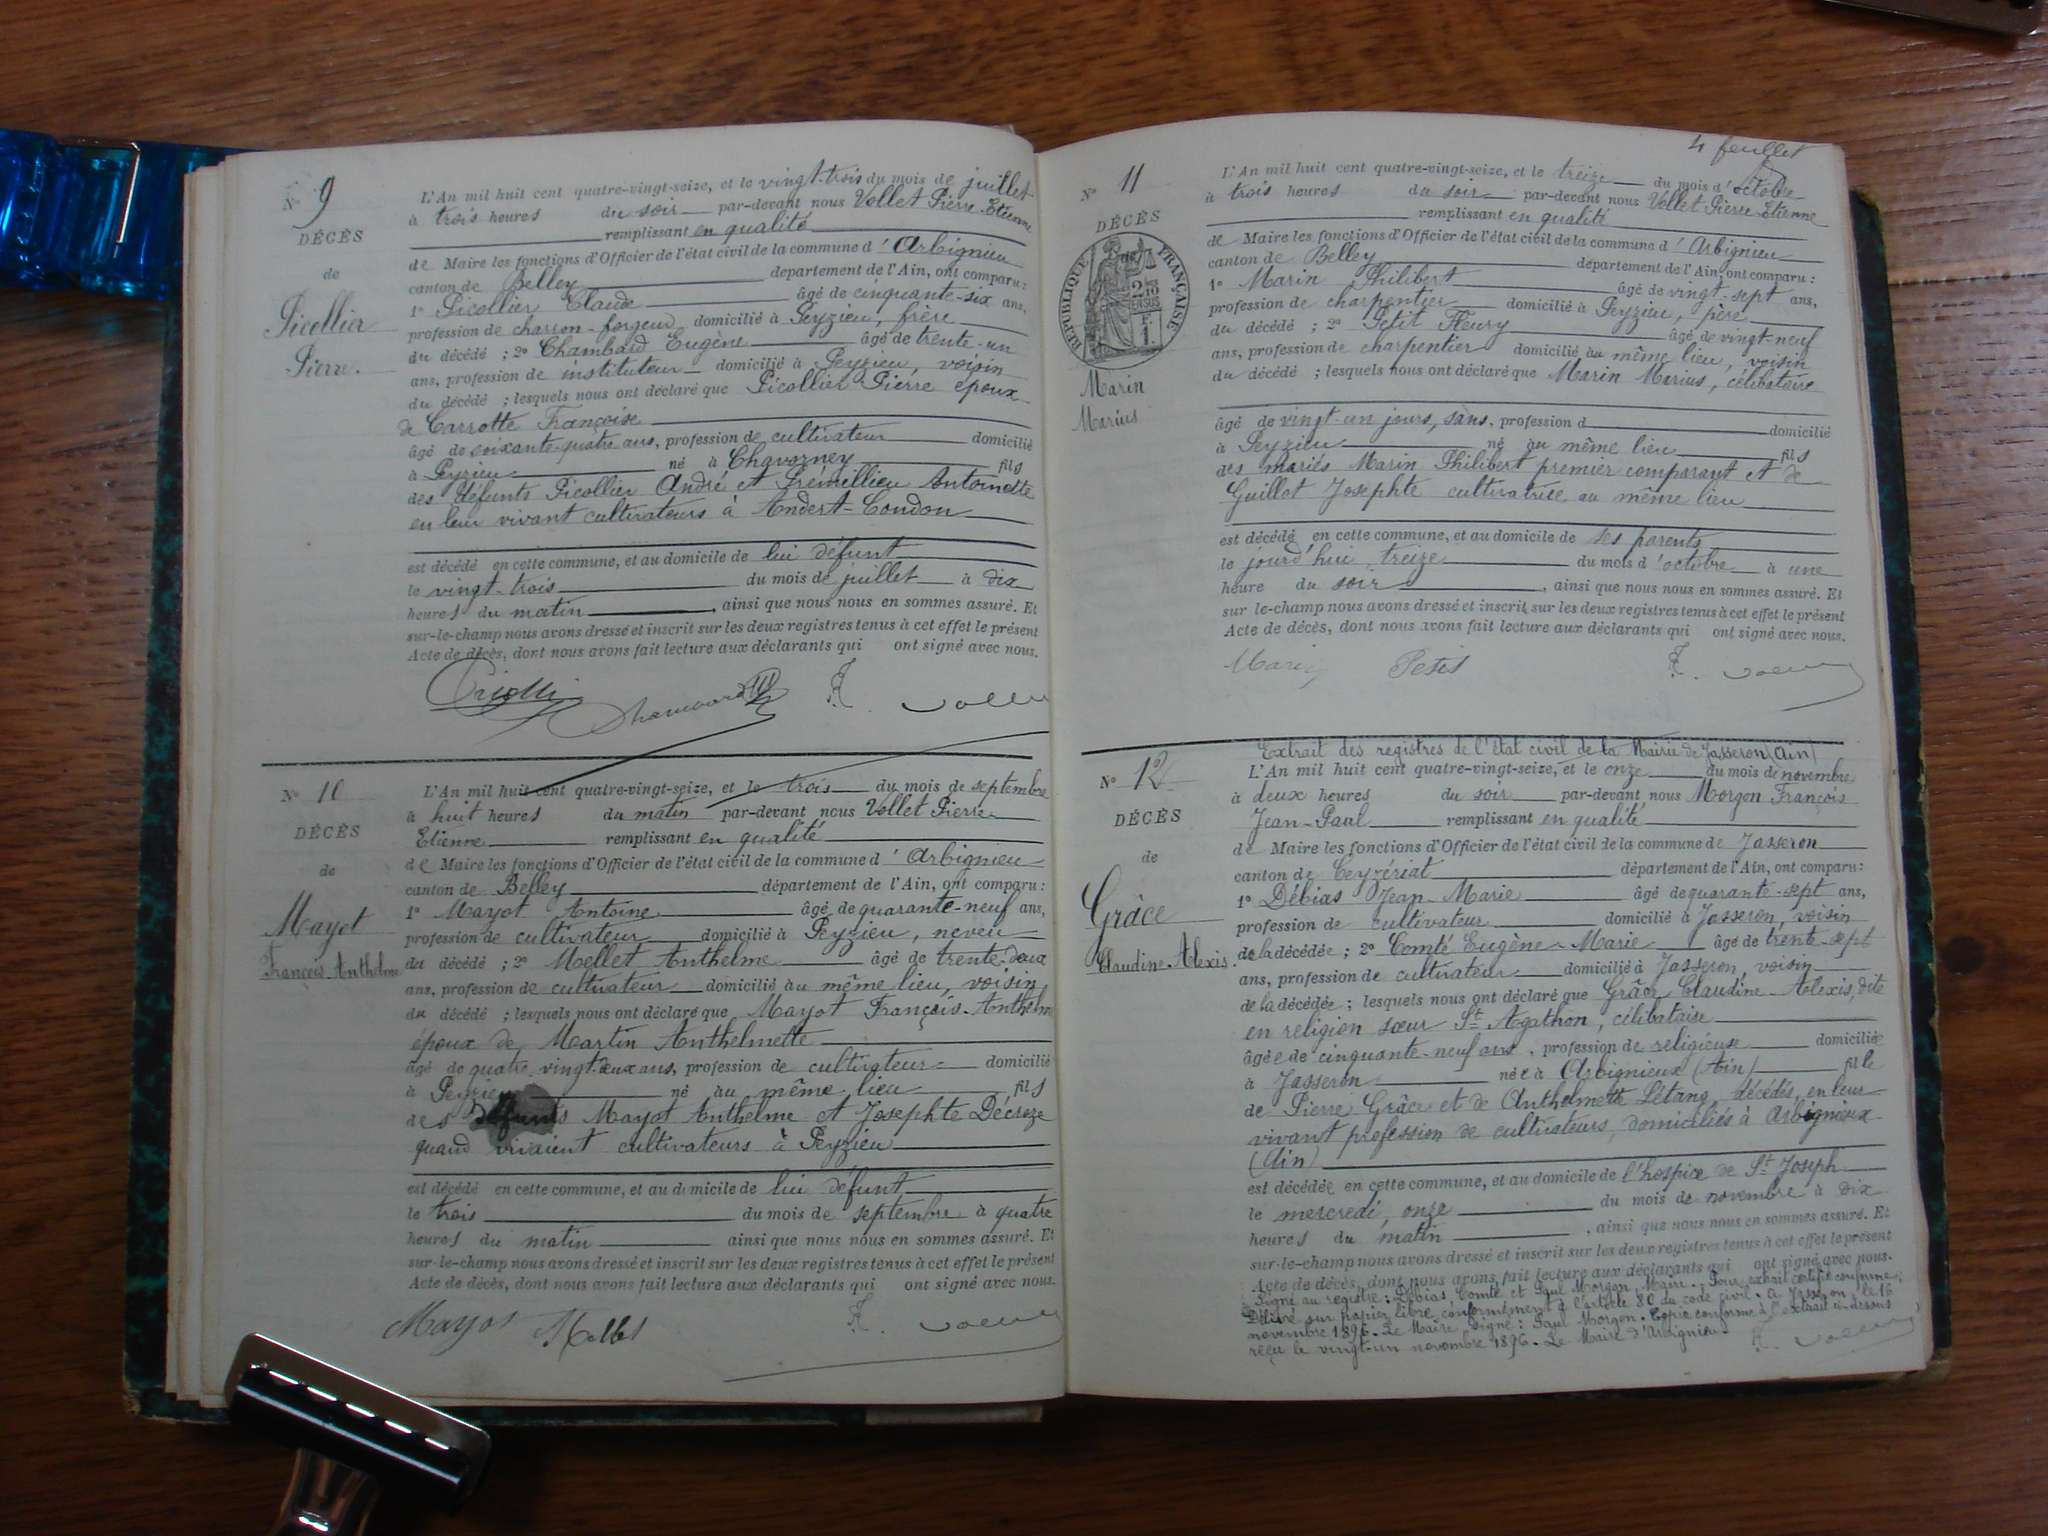 N° 9
DÉCÈS
de
Picollier
Pierre.
L'An mil huit cent quatre-vingt-seize, et le vingt-trois du mois de juillet
à trois heures du soir par-devant nous Vollet Pierre-Etienne
remplissant en qualité
de Maire les fonctions d'Officier de l'état civil de la commune d'Arbignieu
canton de Belley département de l'Ain, ont comparu:
1° Picollier Claude âgé de cinquante-six ans,
profession de charron-forgeur domicilié à Peyzieu, frère
du décédé ; 2° Chambard Eugène âgé de trente-un
ans, profession de instituteur domicilié à Peyzieu, voisin
du décédé ; lesquels nous ont déclaré que Picollier Pierre époux
de Carrotte Françoise
âgé de soixante-quatre ans, profession de cultivateur domicilié
à Peyzieu né à Chavorney fils
des défunts Picollier André et Prémillieu Antoinette
en leur vivant cultivateurs à Andert-Condon
est décédé en cette commune, et au domicile de lui défunt
le vingt-trois du mois de juillet à dix
heures du matin, ainsi que nous nous en sommes assuré. Et
sur-le-champ nous avons dressé et inscrit sur les deux registres tenus à cet effet le présent
Acte de décès, dont nous avons fait lecture aux déclarants qui ont signé avec nous.
N° 10
DÉCÈS
de
Mayot
François Anthelme
L'An mil huit cent quatre-vingt-seize, et le trois du mois de septembre
à huit heures du matin par-devant nous Vollet Pierre
Etienne remplissant en qualité
de Maire les fonctions d'Officier de l'état civil de la commune d'Arbignieu
canton de Belley département de l'Ain, ont comparu :
1° Mayot Antoine âgé de quarante-neuf ans,
profession de cultivateur domicilié à Peyzieu, neveu
du décédé ; 2° Mollet Anthelme âgé de trente-deux
ans, profession de cultivateur domicilié au même lieu, voisin
du décédé ; lesquels nous ont déclaré que Mayot François-Anthelm
époux de Martin Anthelmette
âgé de quatre-vingt-deux ans, profession de cultivateur domicilié
à Peyzieu né au même lieu fils
des défunts Mayot Anthelme et Josephte Décroze
quand vivaient cultivateurs à Peyzieu
est décédé en cette commune, et au domicile de lui défunt
le trois du mois de septembre à quatre
heures du matin ainsi que nous nous en sommes assuré. Et
sur-le-champ nous avons dressé et inscrit sur les deux registres tenus à cet effet le présent
Acte de décès, dont nous avons fait lecture aux déclarants qui ont signé avec nous.
Mayot Mollet
4 feuillet
N° 11
DÉCÈS
RÉPUBLIQUE FRANÇAISE
Marin
Marius
L'An mil huit cent quatre-vingt-seize, et le treize du mois d'octobre
à trois heures du soir par-devant nous Vollet Pierre-Etienne
remplissant en qualité
de Maire les fonctions d'Officier de l'état civil de la commune d'Arbignieu
canton de Belley département de l'Ain, ont comparu :
1° Marin Philibert âgé de vingt-sept ans,
profession de charpentier domicilié à Peyzieu, père
du décédé ; 2° Petit Fleury âgé de vingt-neuf
ans, profession de charpentier domicilié au même lieu, voisin
du décédé ; lesquels nous ont déclaré que Marin Marius, célibataire
âgé de vingt-un jours, sans, profession d domicilié
à Peyzieu né au même lieu fils
des mariés Marin Philibert premier comparant et de
Guillot Josephte cultivatrice au même lieu
est décédé en cette commune, et au domicile de ses parents
le jourd'hui treize du mois d'octobre à une
heure du soir, ainsi que nous nous en sommes assuré. Et
sur-le-champ nous avons dressé et inscrit sur les deux registres tenus à cet effet le présent
Acte de décès, dont nous avons fait lecture aux déclarants qui ont signé avec nous.
Marin Petit
N° 12
DÉCÈS
de
Grâce
Claudine-Alexis.
Extrait des registres de l'état civil de la Mairie de Jasseron (Ain)
L'An mil huit cent quatre-vingt-seize, et le onze du mois de novembre
à deux heures du soir par-devant nous Morgon François
Jean-Paul remplissant en qualité
de Maire les fonctions d'Officier de l'état civil de la commune de Jasseron
canton de Ceyzériat département de l'Ain, ont comparu:
1° Débias Jean-Marie âgé de quarante-sept ans,
profession de cultivateur domicilié à Jasseron, voisin
de la décédée ; 2° Comté Eugène-Marie âgé de trente-sept
ans, profession de cultivateur domicilié à Jasseron, voisin
de la décédée ; lesquels nous ont déclaré que Grâce Claudine-Alexis, dite
en religion sœur St Agathon, célibataire
âgée de cinquante-neuf ans, profession de religieuse domiciliée
à Jasseron née à Arbignieux (Ain) fille
de Pierre Grâce et de Anthelmette Létang, décédés, en leur
vivant profession de cultivateurs, domiciliés à Arbignieux
(Ain)
est décédée en cette commune, et au domicile de l'hospice de St Joseph
le mercredi, onze du mois de novembre à dix
heures du matin, ainsi que nous nous en sommes assuré. Et
sur-le-champ nous avons dressé et inscrit sur les deux registres tenus à cet effet le présent
Acte de décès, dont nous avons fait lecture aux déclarants qui ont signé avec nous.
Signé au registre : Débias, Comté et Paul Morgon, Maire. Pour extrait certifié conforme,
Délivré sur papier libre conformément à l'article 80 du code civil. à Jasseron, le 16
novembre 1896. Le Maire signé : Paul Morgon. Copie conforme à l'extrait ci-dessus
reçu le vingt-un novembre 1896. Le Maire d'Arbignieu